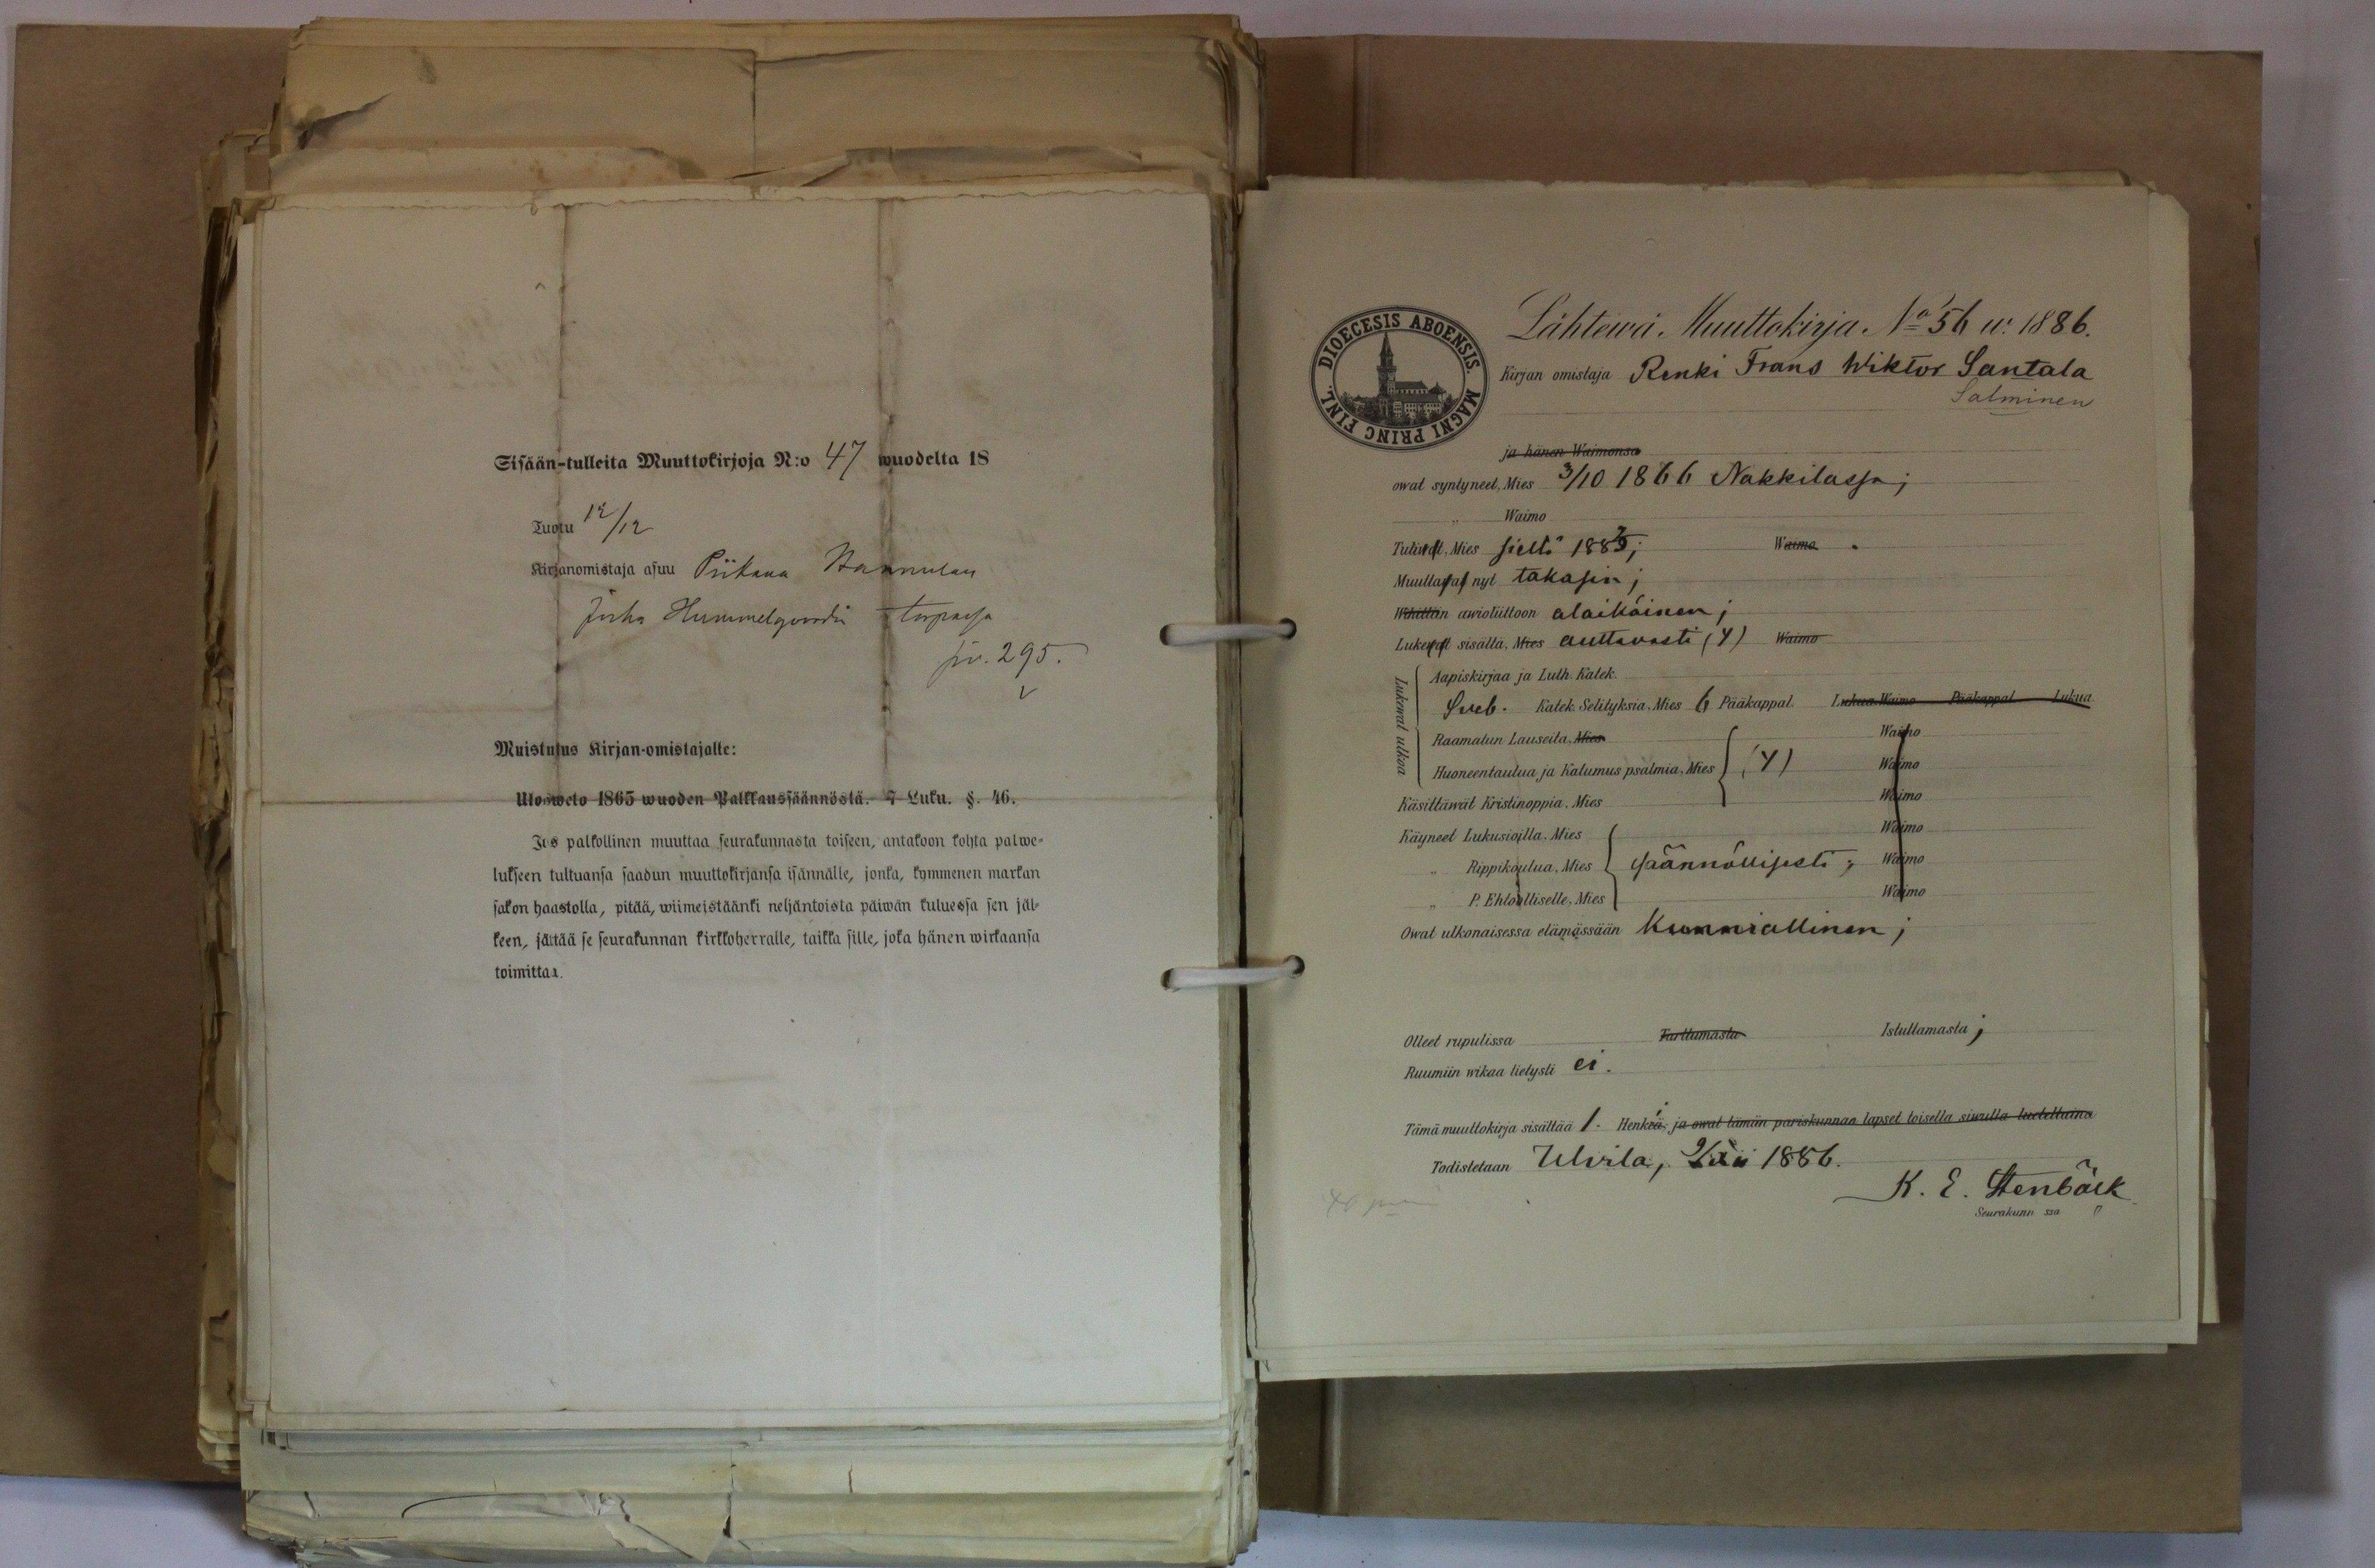 Sisään-tulleita Muuttokirjoja N:o 47 wuodelta 18
Tuotu 12/12
Kirjanomistaja asuu Piikana
torpassa
siv. 295.
Muistutus Kirjan-omistajalle:
Ulosweto 1865 wuoden Palkkaussäännöstä. 7 Luku. §. 46.
Jos palkollinen muuttaa seurakunnasta toiseen, antakoon kohta palwe-
lukseen tultuansa saadun muuttokirjansa isännälle, jonka, kymmenen markan
sakon haastolla, pitää, wiimeistäänki neljäntoista päiwän kuluessa sen jäl-
keen, jättää se seurakunnan kirkkoherralle, taikka sille, joka hänen wirkaansa
toimittaa.
DIOECESIS ABOENSIS. MAGNI PRINC FINL.
Lähtewä Muuttokirja No 56 w. 1886.
Kirjan omistaja Renki Frans Wiktor Santala
Salminen
ja hänen Waimonsa
owat syntyneet, Mies 3/10 1866 Nakkilassa;
„ Waimo
Tuliwat, Mies sieltä Waimo
Muuttawat nyt takasin;
awioliittoon alaikäinen;
Lukewat sisältä, Mies auttavasti (4) Waimo
Lukewat ulkoa
Aapiskirjaa ja Luth. Katek.
Sveb. Katek. Selityksiä, Mies 6 Pääkappal. Lukua. Waimo Pääkappal. Lukua.
Raamatun Lauseita, Mies Waimo
Huoneentaulua ja Katumus psalmia, Mies (4) Waimo
Käsittäwät Kristinoppia, Mies Waimo
Käyneet Lukusioilla, Mies Waimo
„ Rippikoulua, Mies säännöllisesti; Waimo
„ P. Ehtoolliselle, Mies Waimo
Owat ulkonaisessa elämässään Kunniallinen;
Olleet rupulissa Tarttumasta Istuttamasta;
Ruumiin wikaa tietysti ei.
Tämä muuttokirja sisältää 1. Henkiä, ja owat tämän pariskunnan lapset toisella siwulla lueteltuina
Todistetaan Ulvila, 1886.
K. E. Stenbäck
Seurakunn ssa